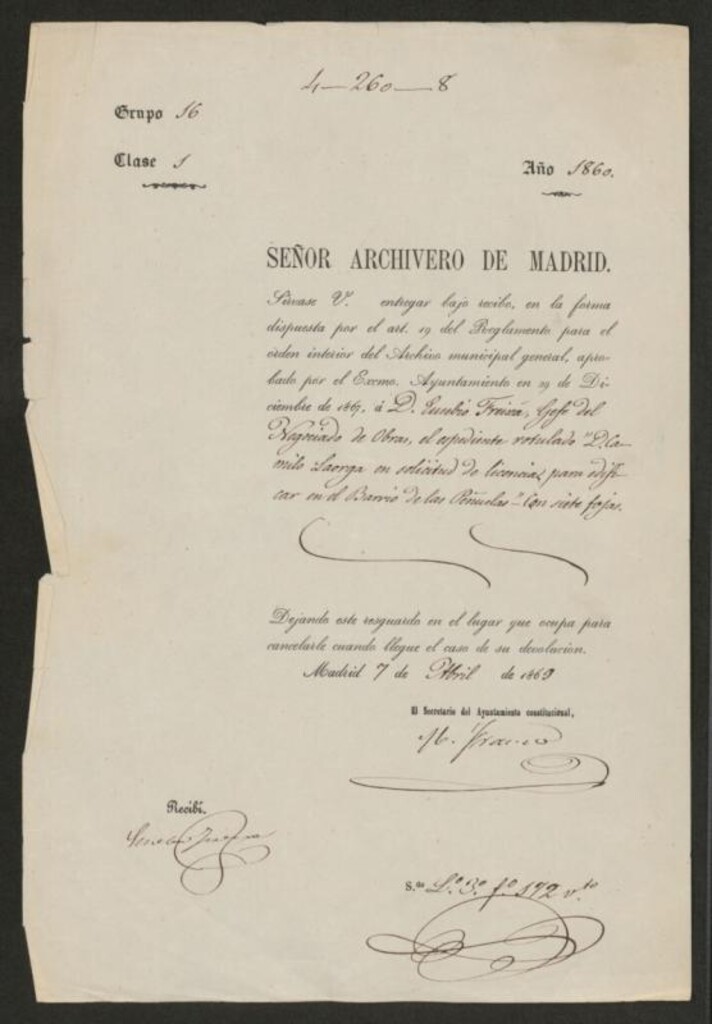 4—260—8
Grupo 16
Clase 1
Año 1860.
SEÑOR ARCHIVERO DE MADRID.
Sírvase V. entregar bajo recibo, en la forma
dispuesta por el art. 19 del Reglamento para el
órden interior del Archivo municipal general, apro-
bado por el Excmo. Ayuntamiento en 29 de Di-
ciembre de 1867, á D. Eusebio Freixa, Gefe del
Negociado de Obras, el espediente rotulado "D. Ca-
milo Laorga en solicitud de licencia para edifi-
car en el Barrio de las Peñuelas" Con siete fojas.
Dejando este resguardo en el lugar que ocupa para
cancelarle cuando llegue el caso de su devolucion.
Madrid 7 de Abril de 1869
El Secretario del Ayuntamiento constitucional,
Recibí.
L.º 3.º f.º 172 v.to